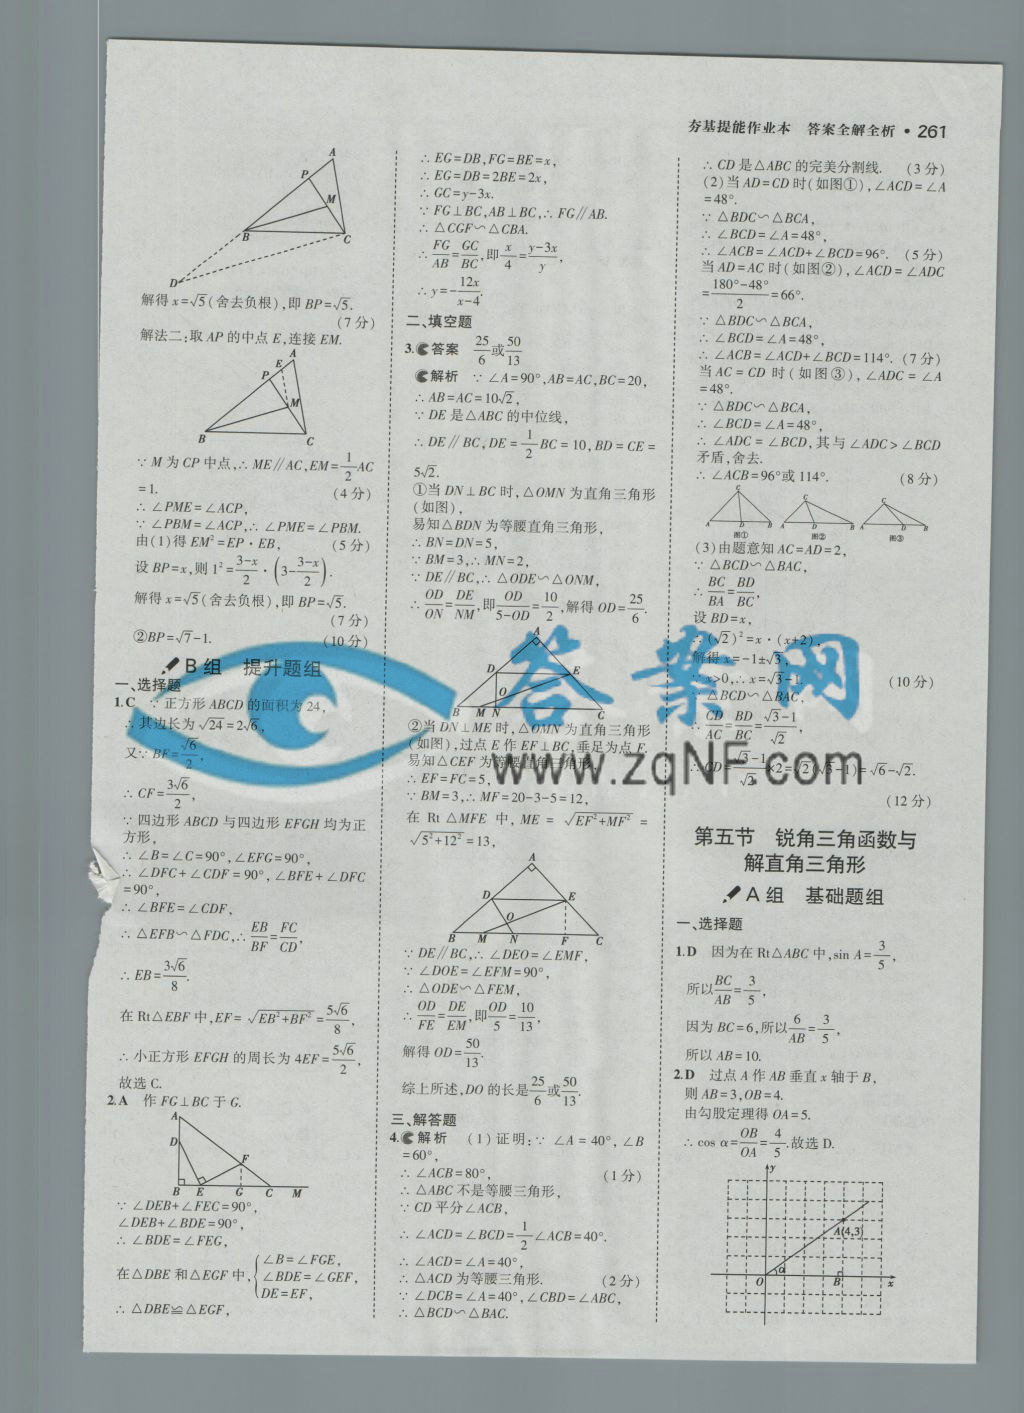 夯基提能作业本 答案全解全析 • 261
解得x=√5(舍去负根),即BP=√5.
(7分)
解法二:取AP的中点E,连接EM.
∵M为CP中点,∴ME∥AC,EM=1/2AC
=1. (4分)
∴∠PME=∠ACP,
∵∠PBM=∠ACP,∴∠PME=∠PBM.
由(1)得EM²=EP·EB, (5分)
设BP=x,则1²=(3-x)/2·(3-(3-x)/2).
解得x=√5(舍去负根),即BP=√5.
(7分)
②BP=√7-1. (10分)
B组 提升题组
一、选择题
1.C ∵正方形ABCD的面积为24,
∴其边长为√24=2√6,
又∵BF=√6/2,
∴CF=3√6/2,
∵四边形ABCD与四边形EFGH均为正
方形,
∴∠B=∠C=90°,∠EFG=90°,
∴∠DFC+∠CDF=90°,∠BFE+∠DFC
=90°,
∴∠BFE=∠CDF,
∴△EFB∽△FDC,∴EB/BF=FC/CD,
∴EB=3√6/8.
在Rt△EBF中,EF=√(EB²+BF²)=5√6/8,
∴小正方形EFGH的周长为4EF=5√6/2,
故选C.
2.A 作FG⊥BC于G.
∵∠DEB+∠FEC=90°,
∠DEB+∠BDE=90°,
∴∠BDE=∠FEG,
在△DBE和△EGF中,{∠B=∠FGE,
∠BDE=∠GEF,
DE=EF,
∴△DBE≌△EGF,
∴EG=DB,FG=BE=x,
∴EG=DB=2BE=2x,
∴GC=y-3x.
∵FG⊥BC,AB⊥BC,∴FG∥AB.
∴△CGF∽△CBA.
∴FG/AB=GC/BC,即x/4=(y-3x)/y,
∴y=-12x/(x-4).
二、填空题
3.答案 25/6或50/13
解析 ∵∠A=90°,AB=AC,BC=20,
∴AB=AC=10√2,
∵DE是△ABC的中位线,
∴DE∥BC,DE=1/2BC=10,BD=CE=
5√2.
①当DN⊥BC时,△OMN为直角三角形
(如图),
易知△BDN为等腰直角三角形,
∴BN=DN=5,
∵BM=3,∴MN=2,
∵DE∥BC,∴△ODE∽△ONM,
∴OD/ON=DE/NM,即OD/(5-OD)=10/2,解得OD=25/6.
②当DN⊥ME时,△OMN为直角三角形
(如图),过点E作EF⊥BC,垂足为点F.
易知△CEF为等腰直角三角形,
∴EF=FC=5,
∵BM=3,∴MF=20-3-5=12,
在Rt△MFE中,ME=√(EF²+MF²)=
√(5²+12²)=13,
∵DE∥BC,∴∠DEO=∠EMF,
∵∠DOE=∠EFM=90°,
∴△ODE∽△FEM,
∴OD/FE=DE/EM,即OD/5=10/13,
解得OD=50/13.
综上所述,DO的长是25/6或50/13.
三、解答题
4.解析 (1)证明:∵∠A=40°,∠B
=60°,
∴∠ACB=80°, (1分)
∴△ABC不是等腰三角形,
∵CD平分∠ACB,
∴∠ACD=∠BCD=1/2∠ACB=40°.
∴∠ACD=∠A=40°,
∴△ACD为等腰三角形. (2分)
∵∠DCB=∠A=40°,∠CBD=∠ABC,
∴△BCD∽△BAC.
∴CD是△ABC的完美分割线. (3分)
(2)当AD=CD时(如图①),∠ACD=∠A
=48°.
∵△BDC∽△BCA,
∴∠BCD=∠A=48°,
∴∠ACB=∠ACD+∠BCD=96°. (5分)
当AD=AC时(如图②),∠ACD=∠ADC
=(180°-48°)/2=66°.
∵△BDC∽△BCA,
∴∠BCD=∠A=48°,
∴∠ACB=∠ACD+∠BCD=114°. (7分)
当AC=CD时(如图③),∠ADC=∠A
=48°.
∵△BDC∽△BCA,
∴∠BCD=∠A=48°,
∴∠ADC=∠BCD,其与∠ADC>∠BCD
矛盾,舍去.
∴∠ACB=96°或114°. (8分)
图① 图② 图③
(3)由题意知AC=AD=2,
∵△BCD∽△BAC,
∴BC/BA=BD/BC,
设BD=x,
∴(√2)²=x·(x+2),
解得x=-1±√3,
∵x>0,∴x=√3-1. (10分)
∵△BCD∽△BAC,
∴CD/AC=BD/BC=(√3-1)/√2,
∴CD=(√3-1)/√2×2=√2(√3-1)=√6-√2.
(12分)
第五节 锐角三角函数与
解直角三角形
A组 基础题组
一、选择题
1.D 因为在Rt△ABC中,sin A=3/5,
所以BC/AB=3/5,
因为BC=6,所以6/AB=3/5,
所以AB=10.
2.D 过点A作AB垂直x轴于B,
则AB=3,OB=4.
由勾股定理得OA=5.
∴cos α=OB/OA=4/5.故选D.
A(4,3)
答案网
www.zqNF.com